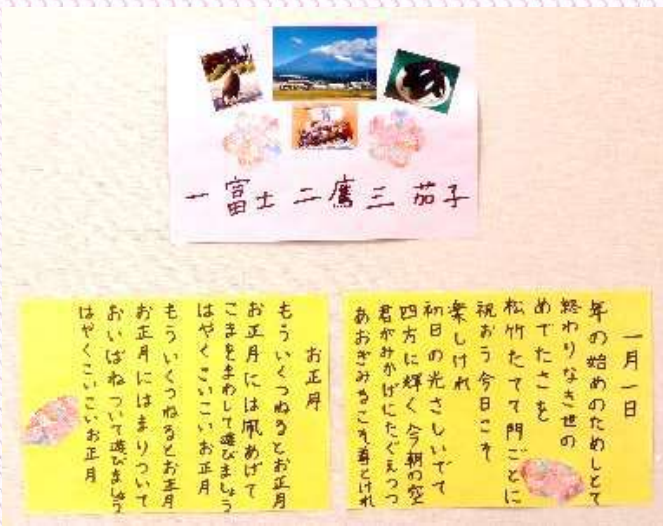 一富士 二鷹 三 茄子
一月一日
年の始めのためしとて
終わりなき世の
めでたさを
松竹たてて門ごとに
祝おう今日こそ
楽しけれ
初日の光さしいでて
四方に輝く今朝の空
君がみかげにたぐえつつ
あおぎみるこそ尊とけれ
お正月
もういくつねるとお正月
お正月には凧あげて
こまをまわして遊びましょう
はやくこいこいお正月
もういくつねるとお正月
お正月にはまりついて
おいばねついて遊びましょう
はやくこいこいお正月